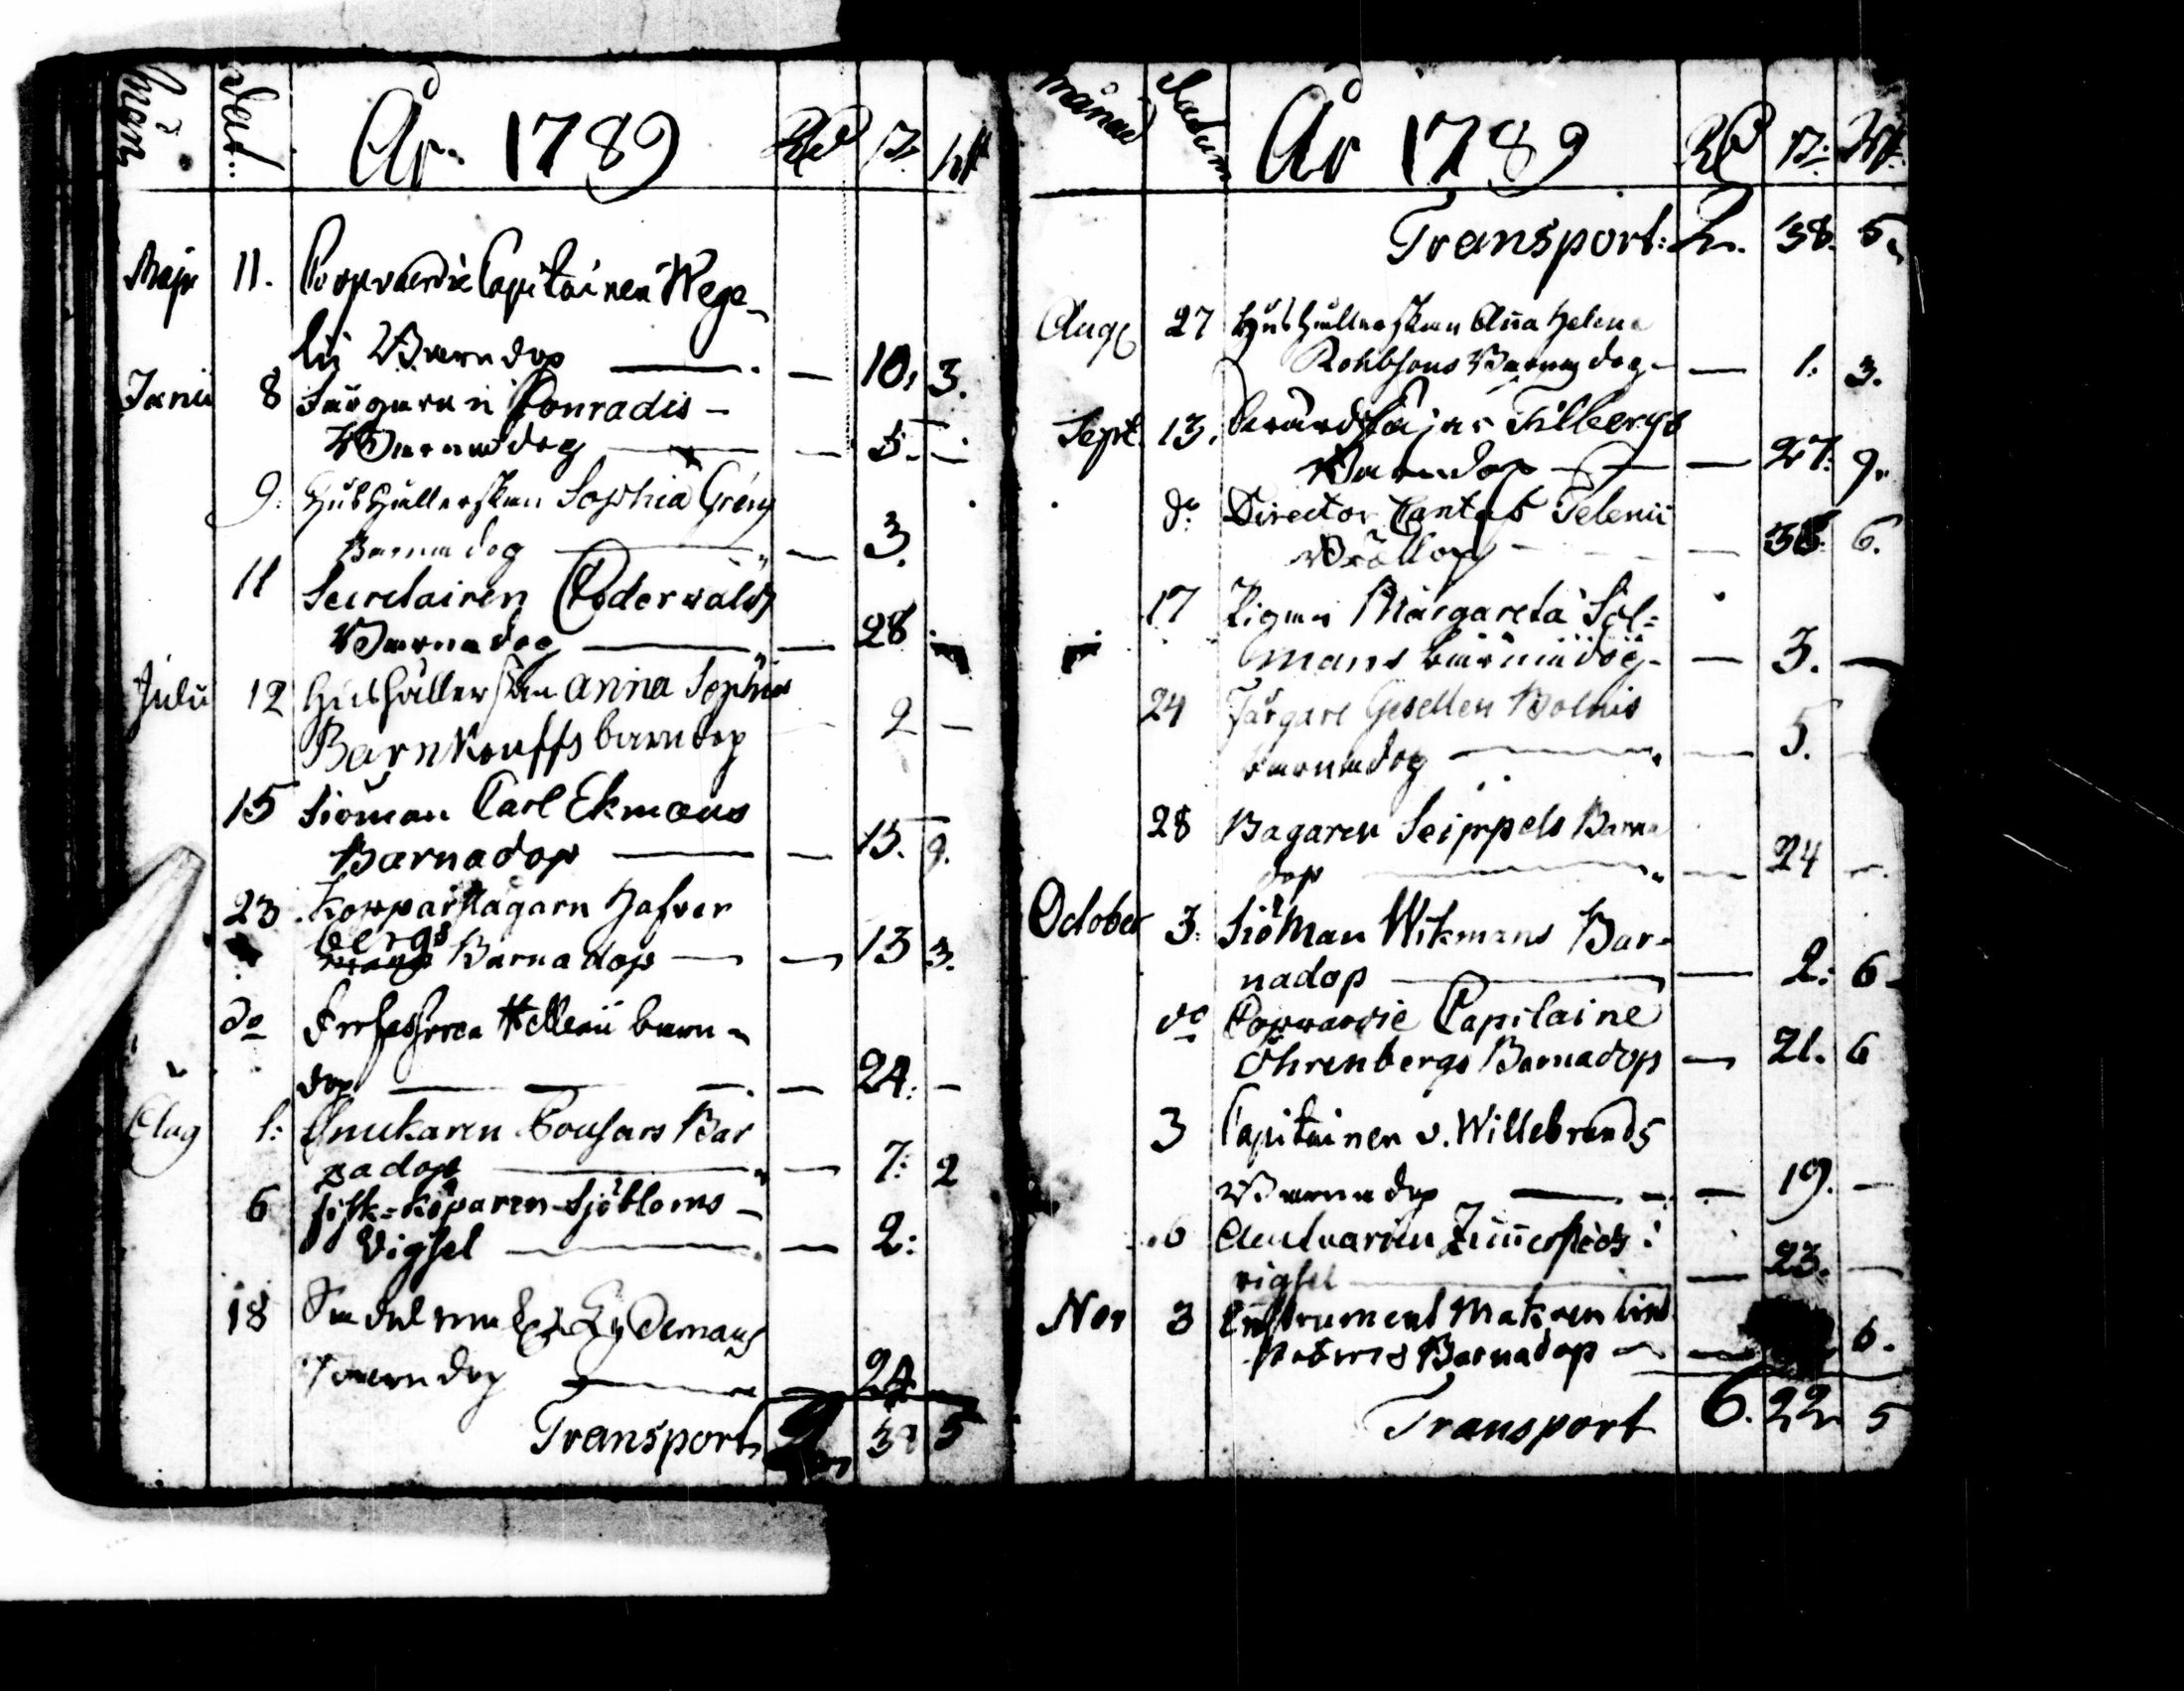 månad Dat. År 1789 Rd ß. rst
Maji 11. Copvaerdie Capitainen Wege-
lii Barndop — 10. 3.
Junii 8 Färgaren Conradis –
Barnadop — 5. –
9. Hushållerskan Sophia Gréns
Barnadop — 3.
11 Secretairen Cederwalds
Barnadop — 28
Julii 12 Hushållerskan Anna Sophia
Barnkouffs barndop 2 –
15 Siöman Carl Ekmans
Barnadop — 15. 9.
23 Kopparslagarn Hafver
bergs
Barnadop — 13 3.
do Professoren Hellenii barn-
dop — 24. –
Aug 1. Snickaren Bar
nadop — 7: 2
6 fisk-köparen Sjöbloms –
Vigsel — 2:
18 Lydemans
barndop — 24
Transport 2 38 5
månad Datum År 1789 Rd ß: rst:
Transport: 2. 38. 5.
Aug 27 Hushållerskan Anna Helena
Barnadop – 1. 3.
Sept. 13. Tilbergs
Barndop — 27. 9.
do Director Cantus Telenii
Bröllop — 38. 6.
17 Pigan Margareta Sol=
mans barnadop – 3. —
24 Färgare Gesellen Bolnis
barnadop — 5. –
28 Bagaren Seippels Barna
dop — 24 –
October 3. Siöman Wikmans Bar-
nadop — 2: 6
do Copvardie Capitaine
Öhrenbergs Barnadop — 21. 6
3 Capitainen v. Willebrands
Barnadop — 19. –
6
vigsel — 23. —
Nov 3 Instrument Makren Lind
Barnadop — 6.
Transport 6. 22 5